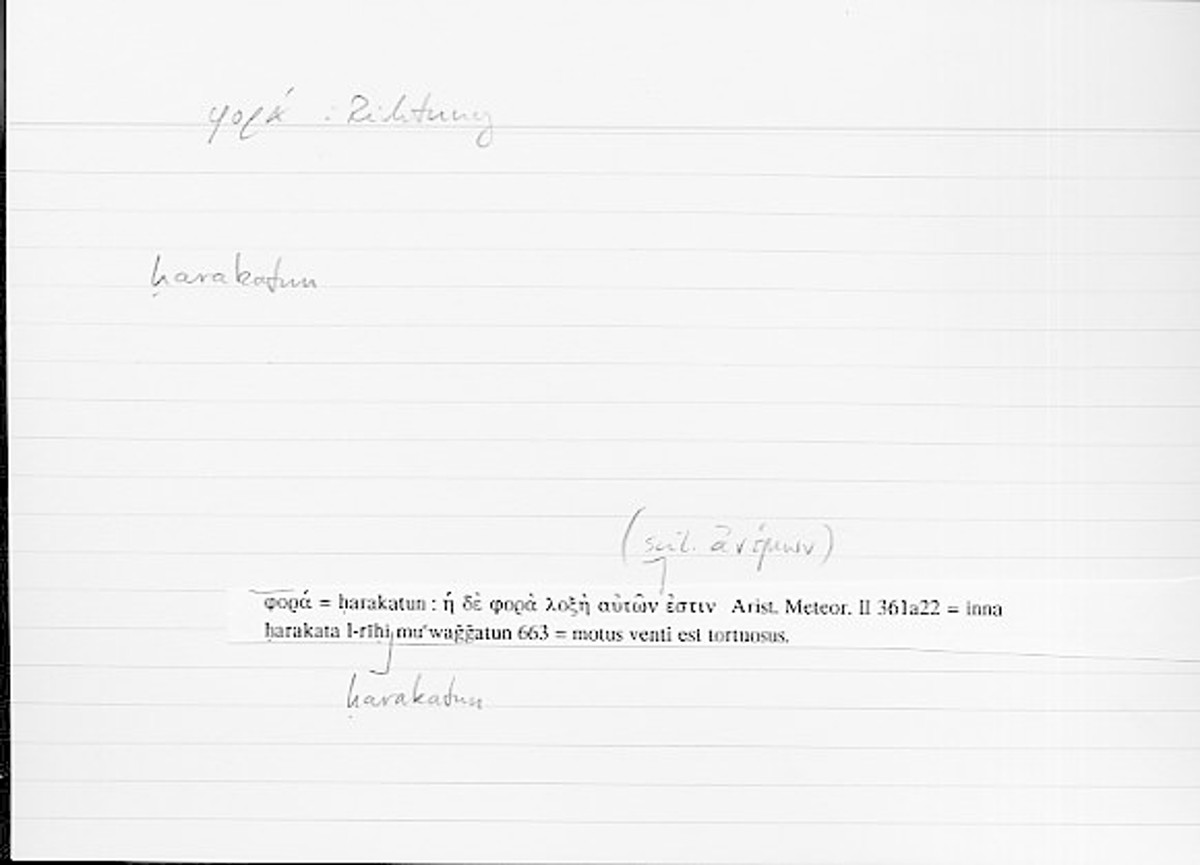 φορά : Richtung
ḥarakatun
(scil. ἀνέμων)
φορά = ḥarakatun : ἡ δὲ φορὰ λοξὴ αὐτῶν ἐστιν Arist. Meteor. II 361a22 = inna
ḥarakata l-rīḥi muʿwaǧǧatun 663 = motus venti est tortuosus.
ḥarakatun